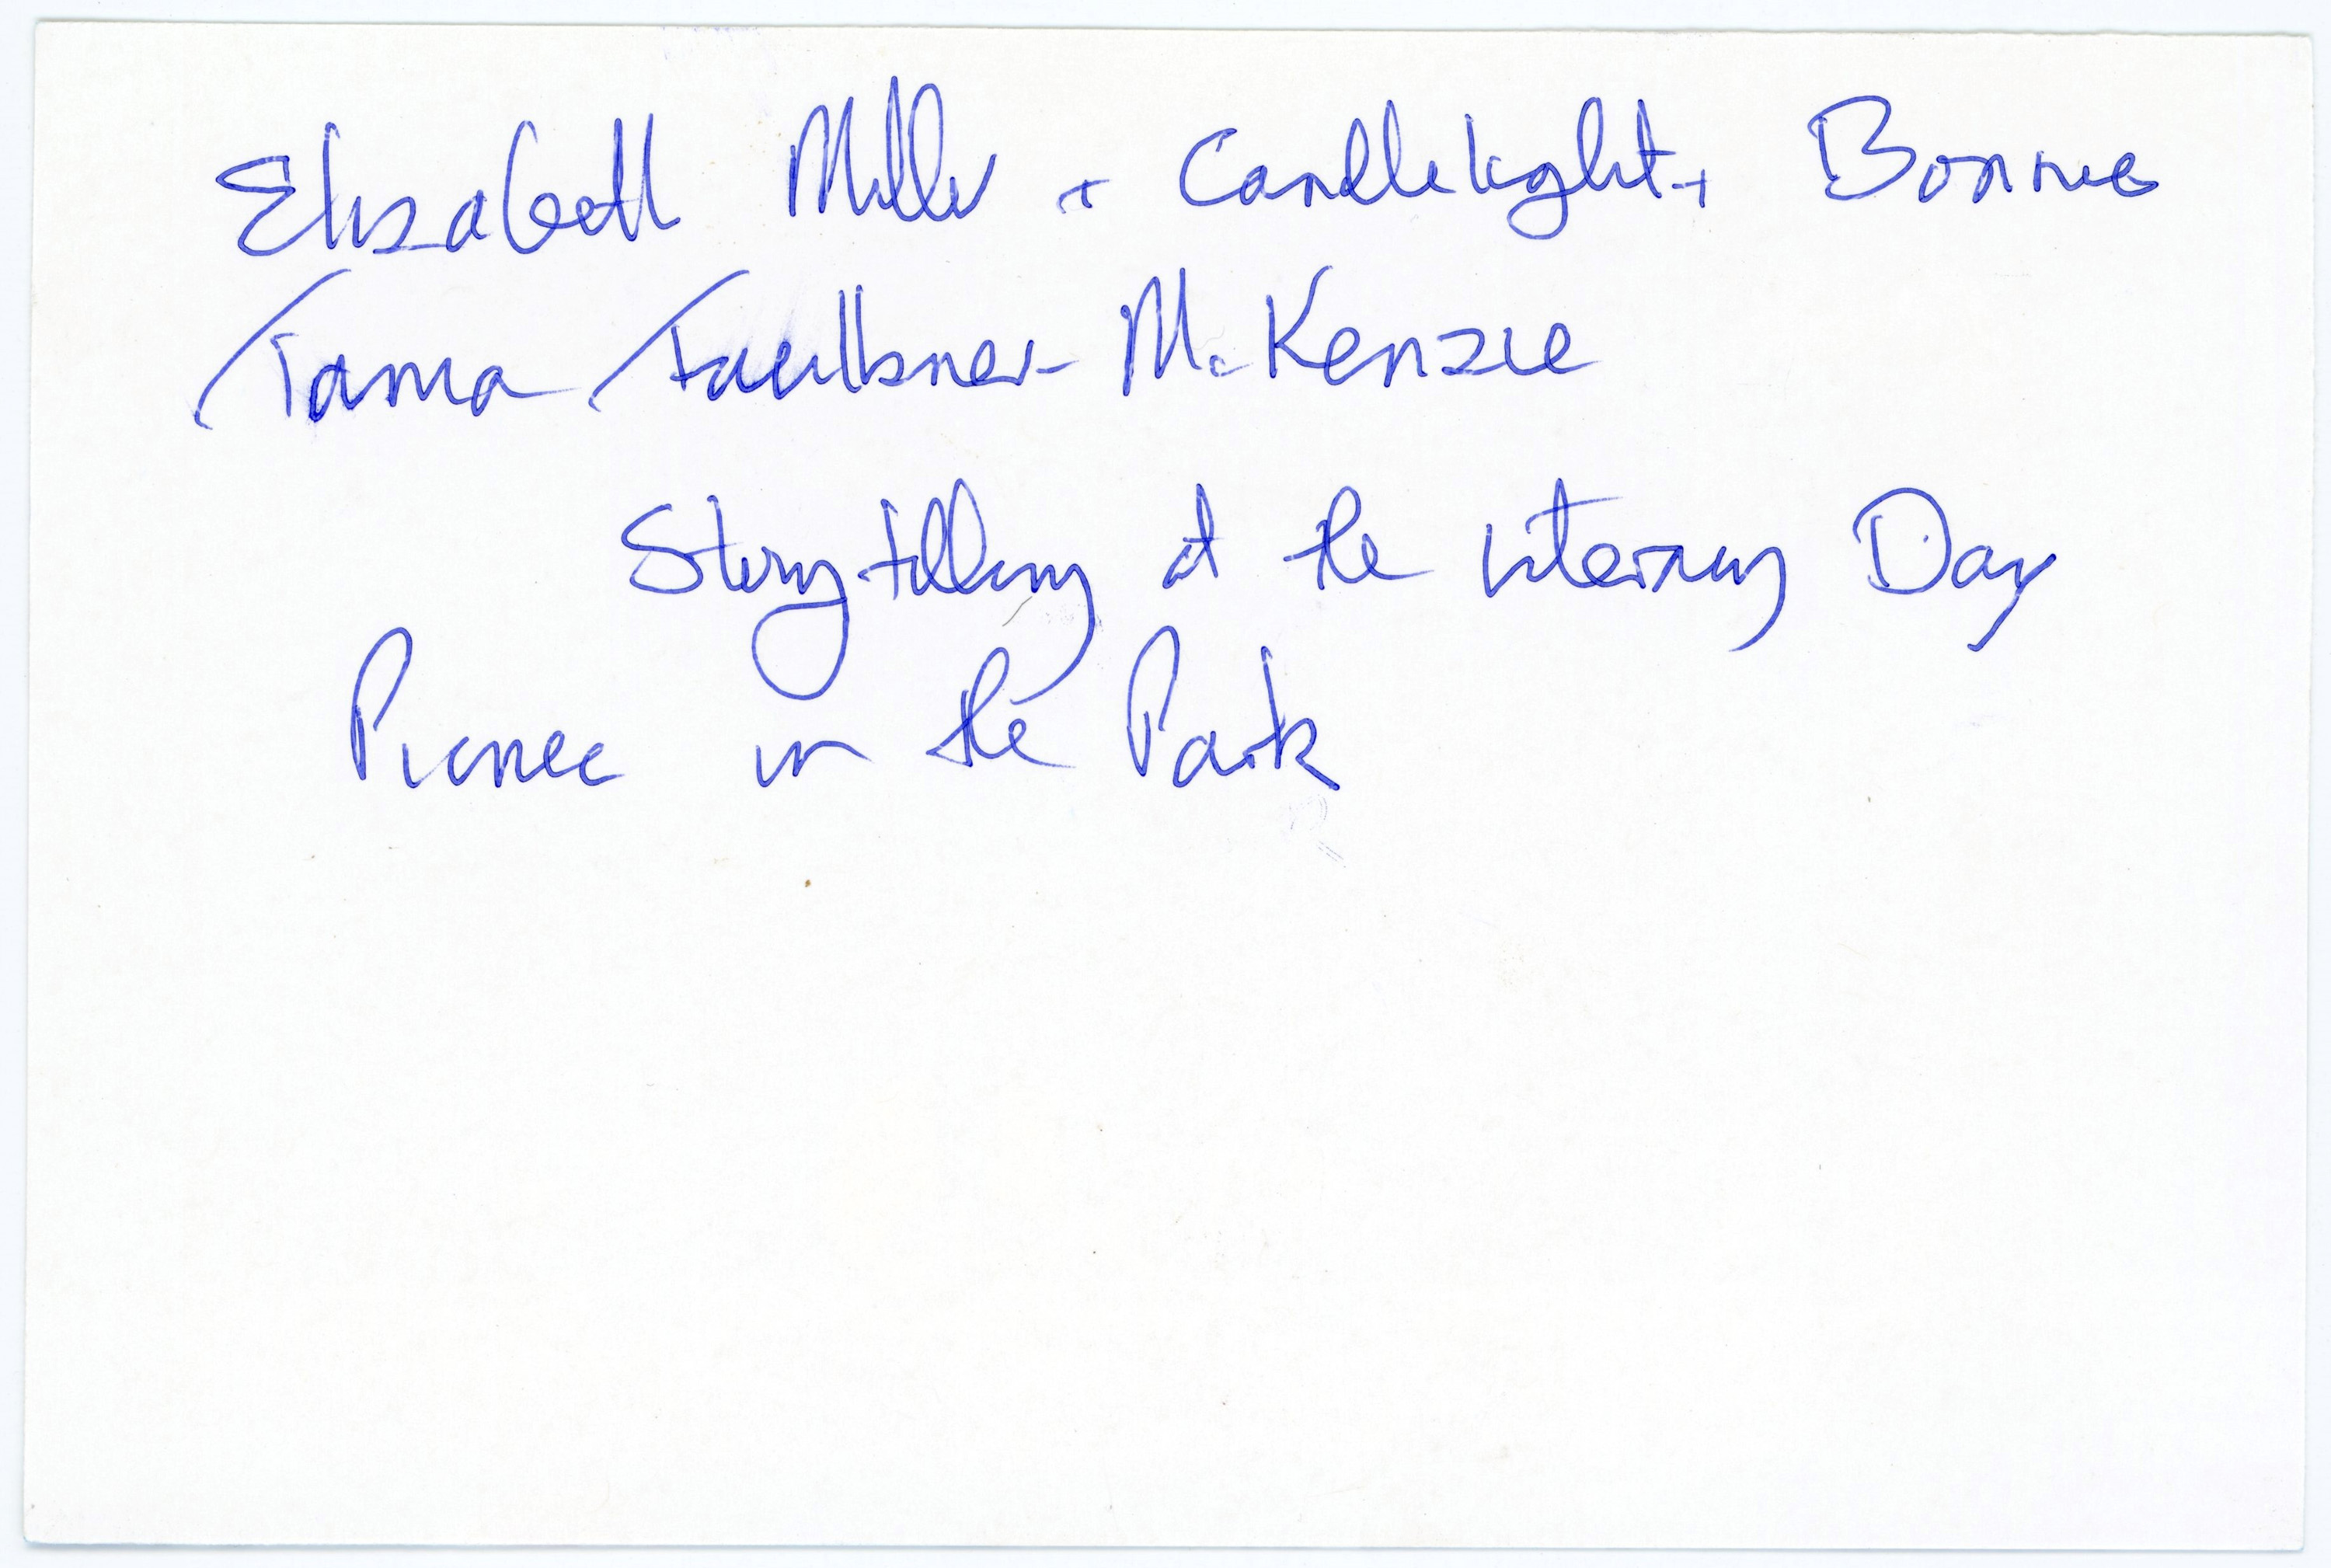 Elizabeth Miller + Candlelight + Bonnie
Tania Faulkner-McKenzie
Storytelling at the Literacy Day
Picnic in the Park